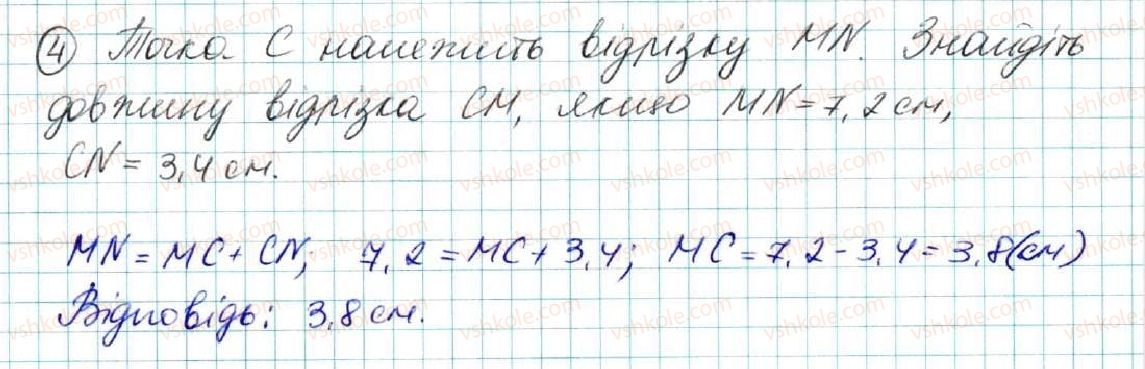 4 Точка С належить відрізку MN. Знайдіть
довжину відрізка СМ, якщо MN = 7,2 см,
CN = 3,4 см.
MN = MC + CN; 7,2 = MC + 3,4; MC = 7,2 - 3,4 = 3,8 (см)
Відповідь: 3,8 см.